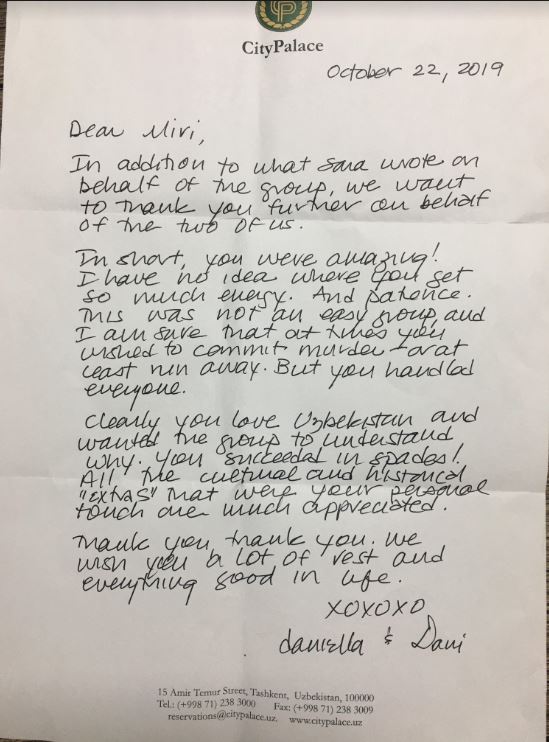 CP
CityPalace
October 22, 2019
Dear Miri,
In addition to what Sara wrote on
behalf of the group, we want
to thank you further on behalf
of the two of us.
In short, you were amazing!
I have no idea where you get
so much energy. And patience.
This was not an easy group, and
I am sure that at times you
wished to commit murder - or at
least run away. But you handled
everyone.
Clearly you love Uzbekistan and
wanted the group to understand
why. You succeeded in spades!
All the cultural and historical
"extras" that were your personal
touch are much appreciated.
Thank you, thank you. We
wish you a lot of rest and
everything good in life.
XOXOXO
Daniella & Dani
15 Amir Temur Street, Tashkent, Uzbekistan, 100000
Tel.: (+998 71) 238 3000 Fax: (+998 71) 238 3009
reservations@citypalace.uz, www.citypalace.uz